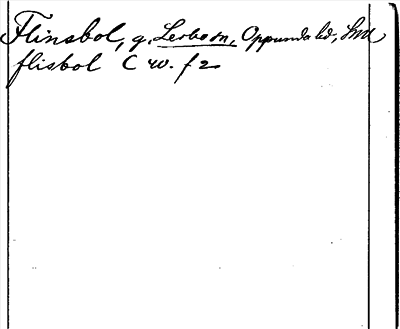 Flinsbol, g, Lerbo sn, Oppunda hd, Sml
flisbol C w. f 2